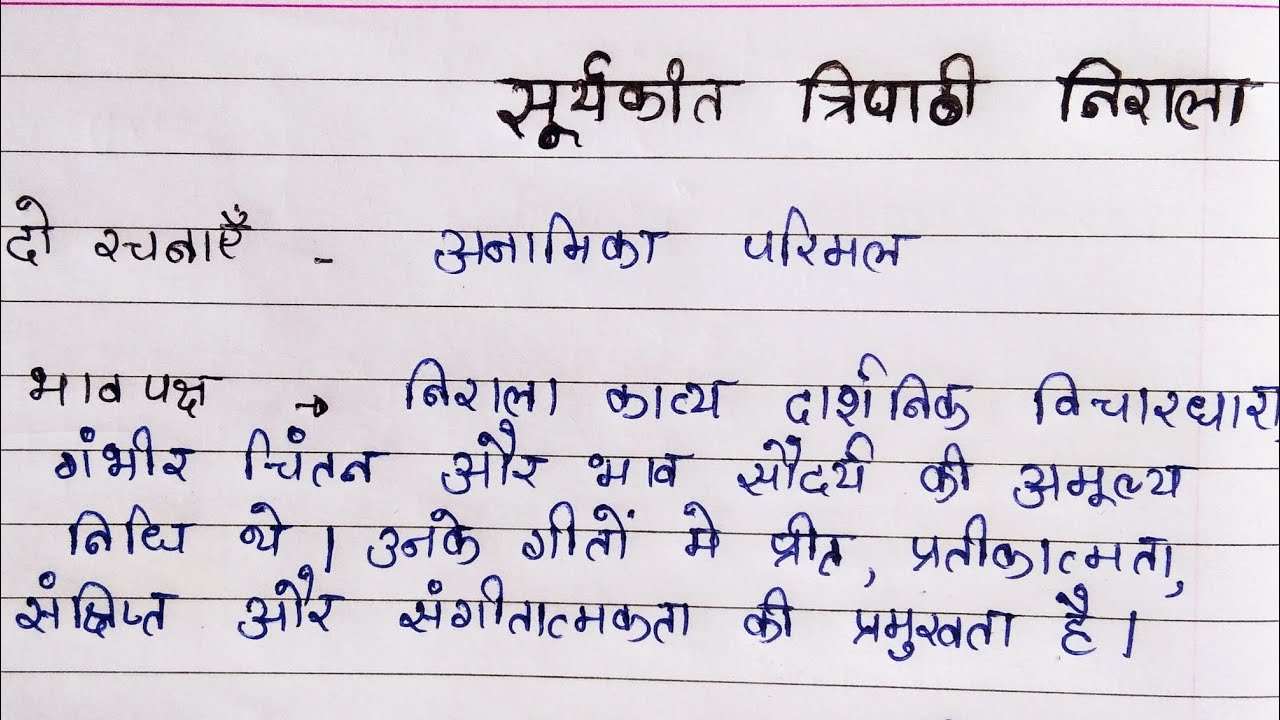 सूर्यकांत त्रिपाठी निराला
दो रचनाएँ - अनामिका परिमल
भाव पक्ष → निराला काव्य दार्शनिक विचारधारा,
गंभीर चिंतन और भाव सौंदर्य की अमूल्य
निधि थे। उनके गीतों मे प्रीत, प्रतीकात्मता,
संक्षिप्त और संगीतात्मकता की प्रमुखता है।